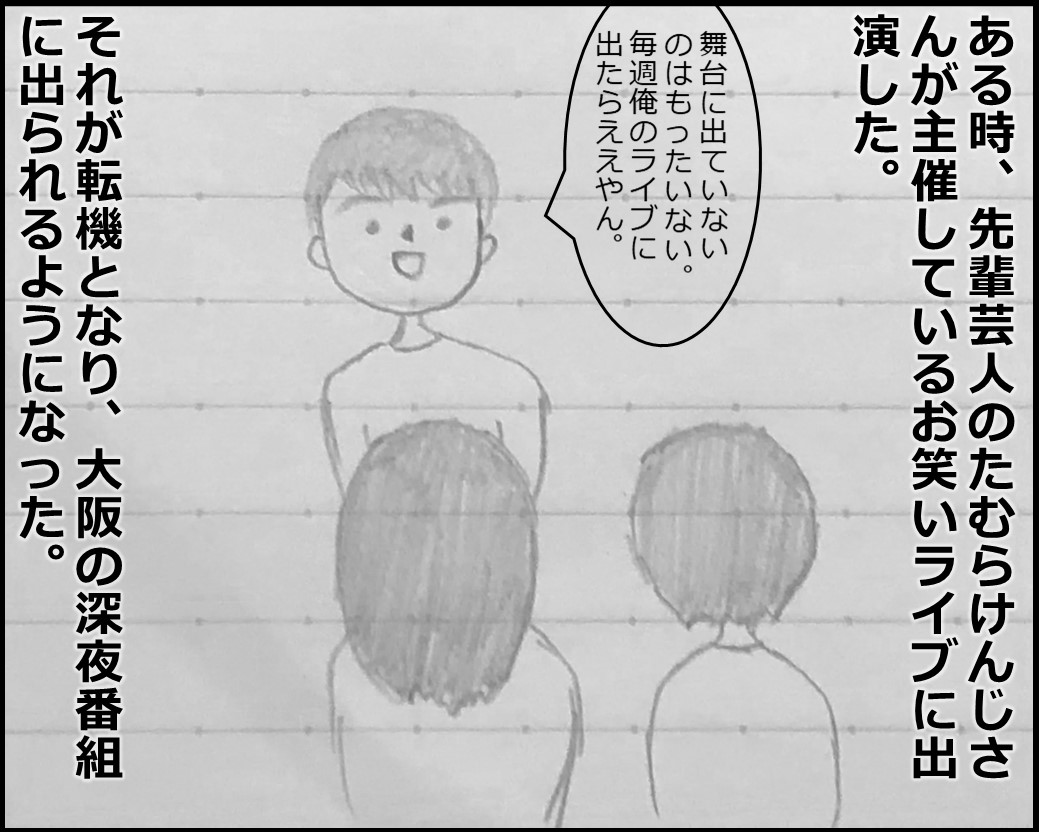 ある時、先輩芸人のたむらけんじさ
んが主催しているお笑いライブに出
演した。
舞台に出ていない
のはもったいない。
毎週俺のライブに
出たらええやん。
それが転機となり、大阪の深夜番組
に出られるようになった。